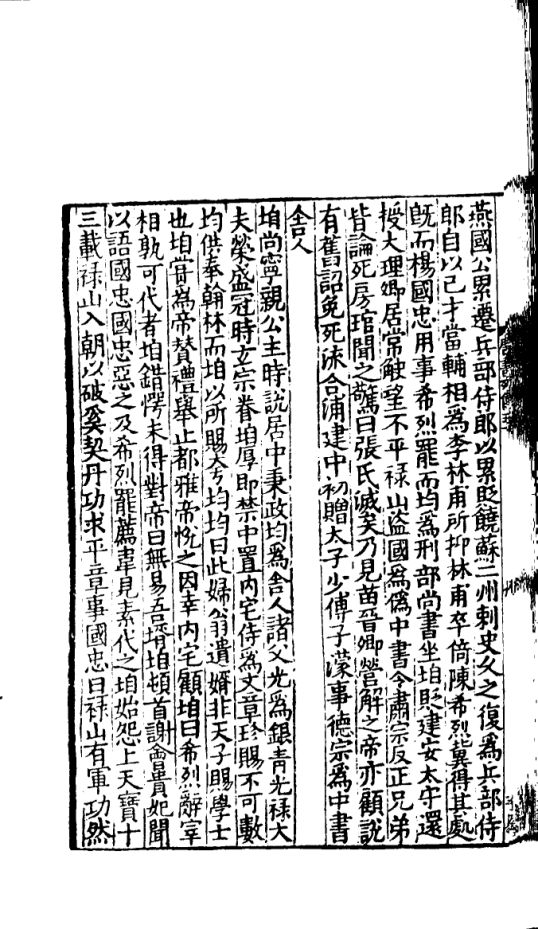 燕國公累遷兵部侍郎以累貶饒蘇二州刺史久之復爲兵部侍
郎自以己才當輔相爲李林甫所抑林甫卒倚陳希烈冀得其處
旣而楊國忠用事希烈罷而均爲刑部尚書坐垍貶建安太守還
授大理卿居常觖望不平祿山盜國爲僞中書令肅宗反正兄弟
皆論死房琯聞之驚曰張氏滅矣乃見苗晉卿營解之帝亦顧說
有舊詔免死流合浦建中初贈太子少傅子濛事德宗爲中書
舍人
垍尚寧親公主時說居中秉政均爲舍人諸父光爲銀青光祿大
夫榮盛冠時玄宗眷垍厚即禁中置內宅侍爲文章珍賜不可數
均供奉翰林而垍以所賜夸均均曰此婦翁遺壻非天子賜學士
也垍嘗爲帝贊禮舉止都雅帝恱之因幸內宅顧垍曰希烈辭宰
相孰可代者垍錯愕未得對帝曰無易吾壻垍頓首謝會貴妃聞
以語國忠國忠惡之及希烈罷薦韋見素代之垍始怨上天寶十
三載祿山入朝以破奚契丹功求平章事國忠曰祿山有軍功然